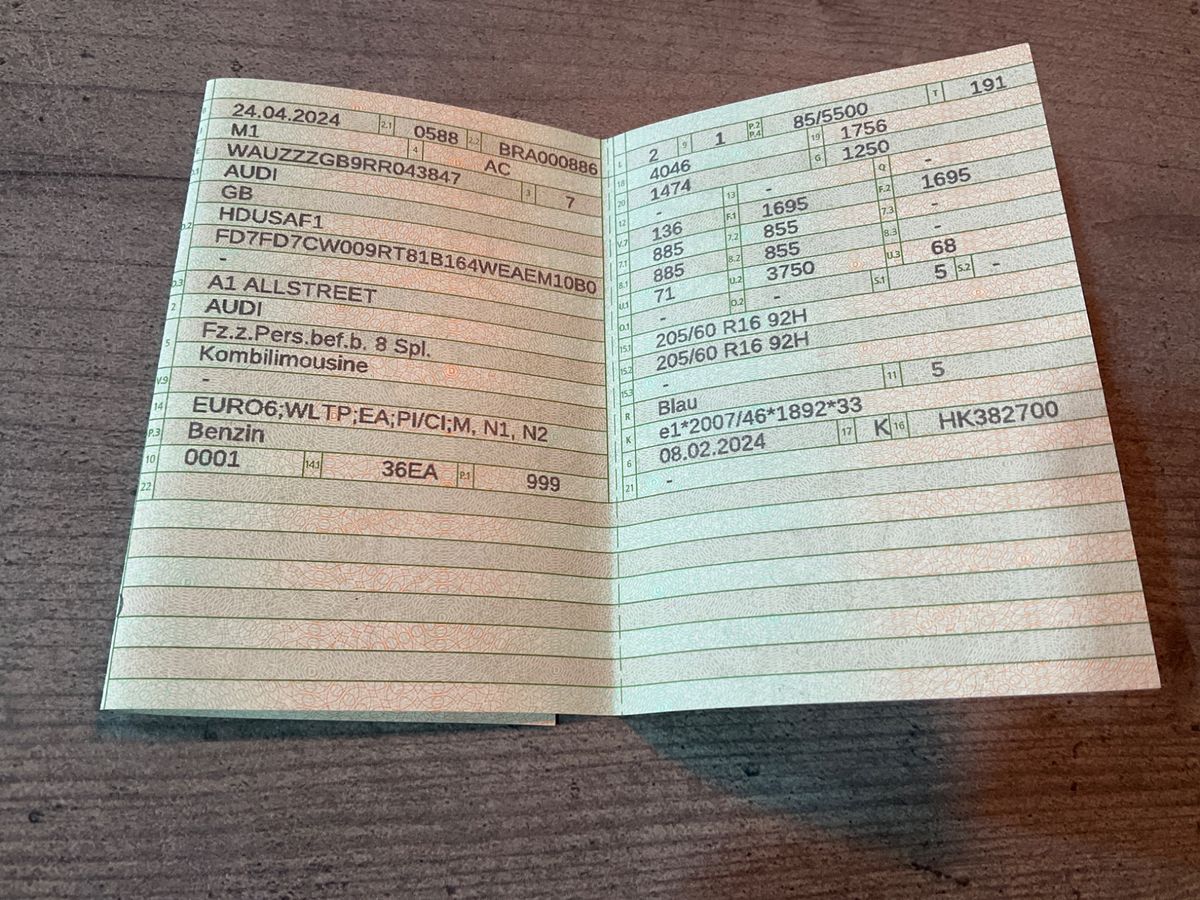 24.04.2024 2.1 0588 2.2 BRA000886
M1 4 AC
WAUZZZGB9RR043847 3 7
AUDI
GB
HDUSAF1
FD7FD7CW009RT81B164WEAEM10B0
-
D.3 A1 ALLSTREET
2 AUDI
Fz.z.Pers.bef.b. 8 Spl.
5 Kombilimousine
V.9 -
14 EURO6;WLTP;EA;PI/CI;M, N1, N2
P.3 Benzin
10 0001 14.1 36EA P.1 999
22
L 2 9 1 P.2 P.4 85/5500 T 191
18 4046 19 1756
20 1474 G 1250
12 - 13 - Q -
V.7 136 F.1 1695 F.2 1695
7.1 885 7.2 855 7.3 -
8.1 885 8.2 855 8.3 -
U.1 71 U.2 3750 U.3 68
O.1 - O.2 - S.1 5 S.2 -
15.1 205/60 R16 92H
15.2 205/60 R16 92H
15.3 -
R Blau 11 5
K e1*2007/46*1892*33
6 08.02.2024 17 K 16 HK382700
21 -